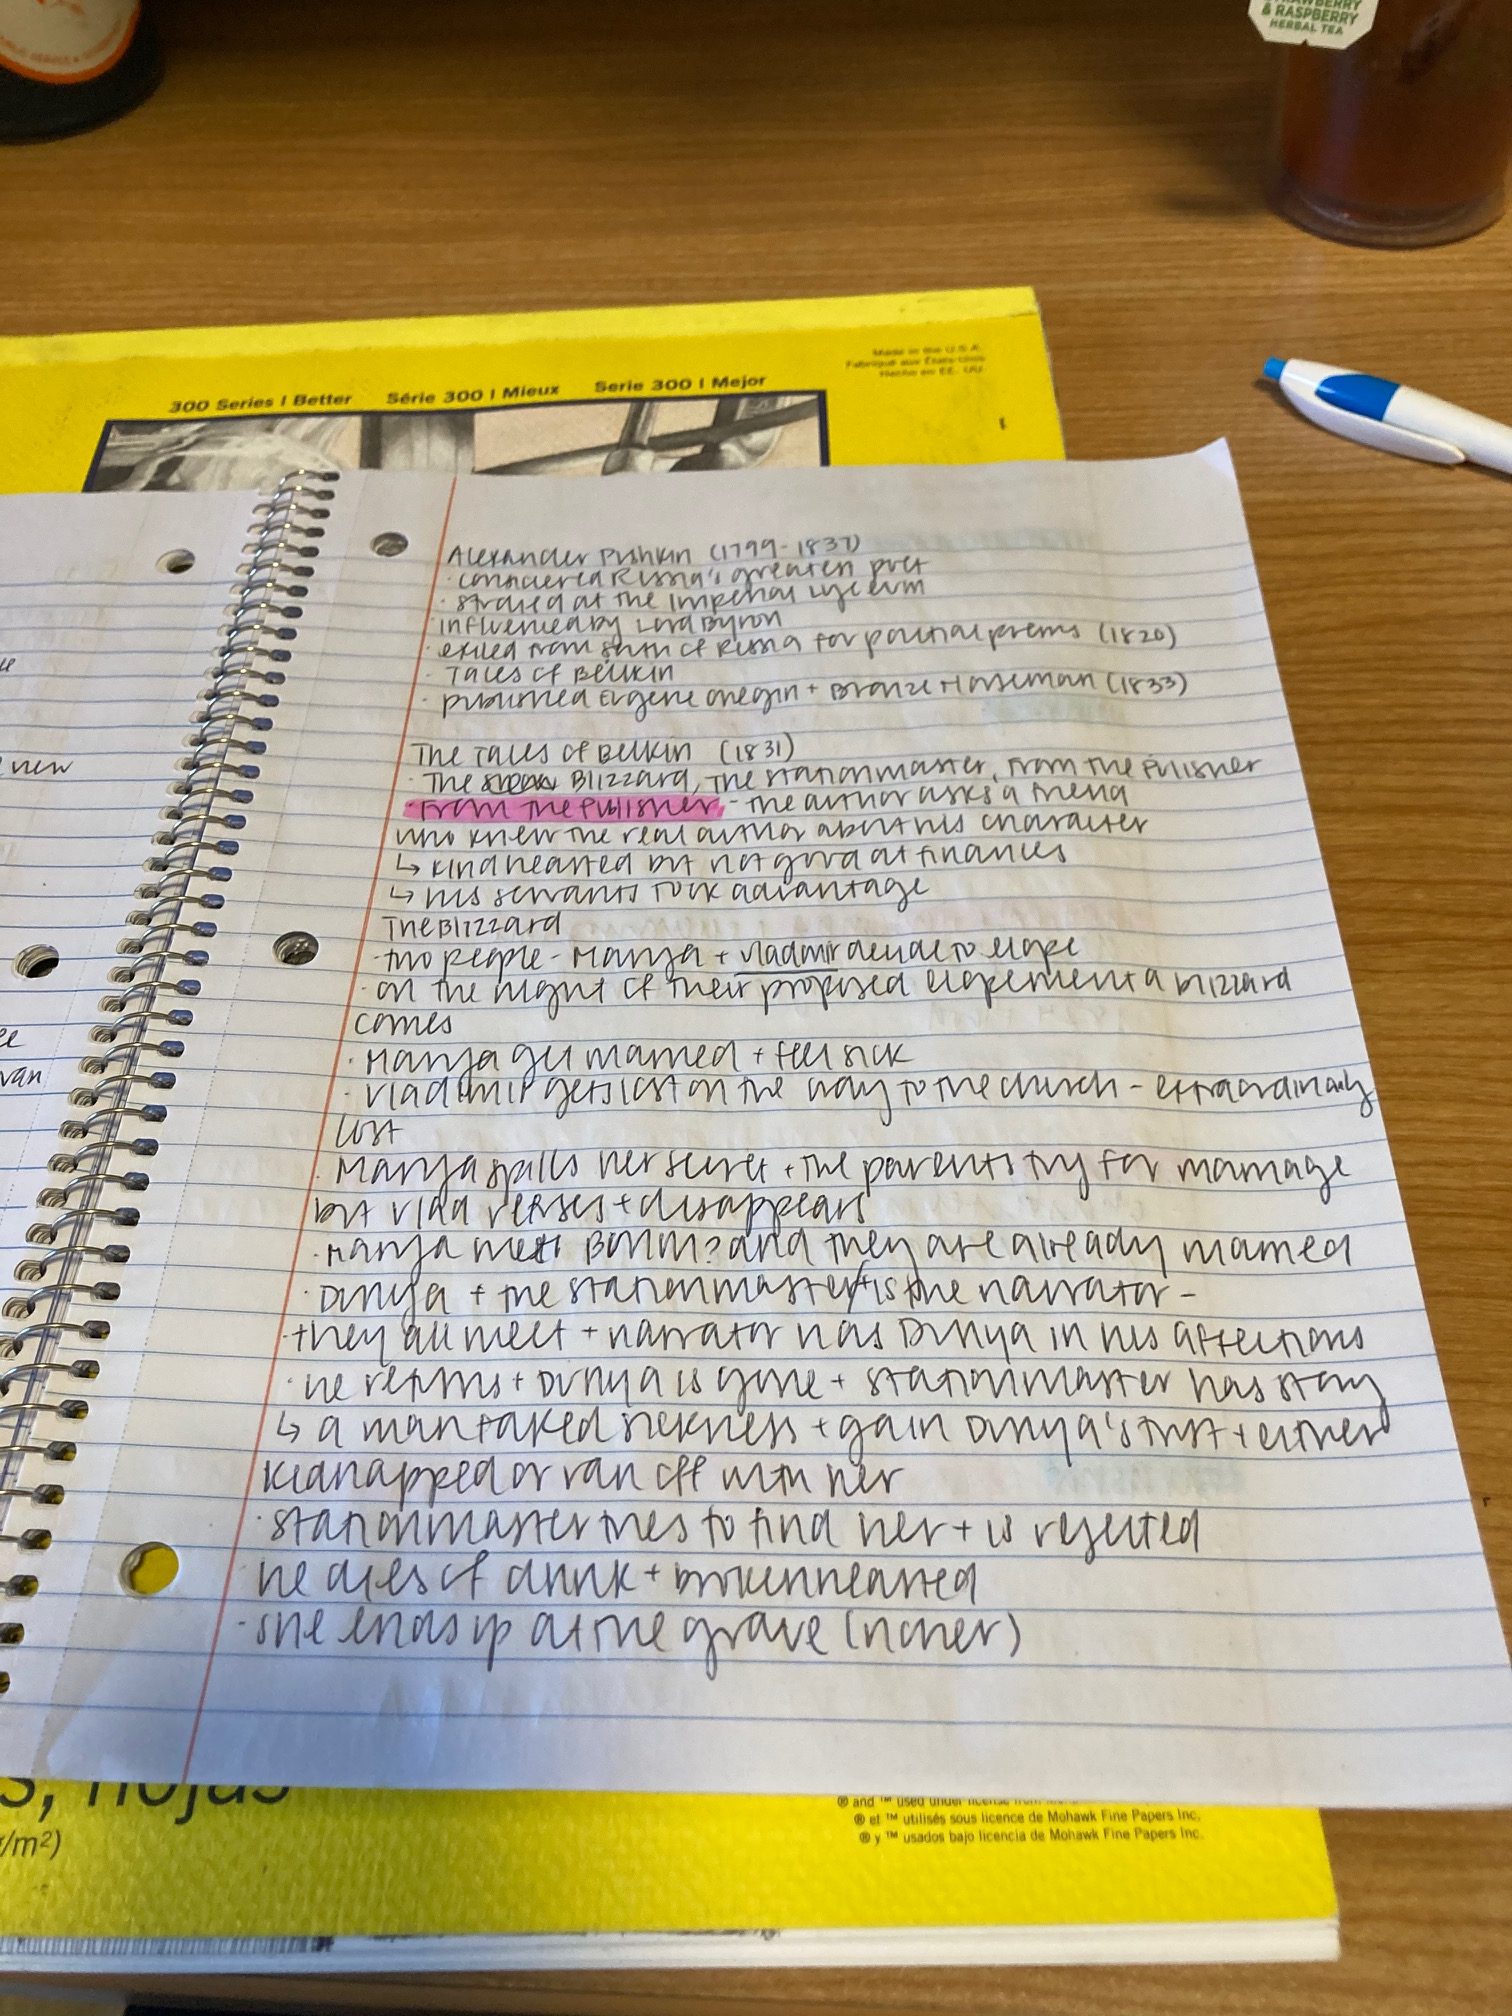 & RASPBERRY
HERBAL TEA
Made in the U.S.A.
Fabriqué aux États-Unis
Hecho en EE. UU.
300 Series | Better Série 300 | Mieux Serie 300 | Mejor
new
van
Alexander Pushkin (1799-1837)
· considered Russia's greatest poet
· studied at the Imperial Lyceum
· influenced by Lord Byron
· exiled from south of Russia for political poems (1820)
· Tales of Belkin
· published Eugene Onegin + Bronze Horseman (1833)
The Tales of Belkin (1831)
· The Blizzard, The Stationmaster, From the Pulisher
· From the Publisher - the author asks a friend
who knew the real author about his character
↳ kindhearted but not good at finances
↳ his servants took advantage
The Blizzard
· two people - Marya + Vladmir decide to elope
· on the night of their proposed elopement a blizzard
comes
· Marya get married + feel sick
· Vladimir gets lost on the way to the church - extraordinarily
lost
· Marya spills her secret + the parents try for marriage
but Vlad refuses + disappears
· Marya meets and they are already married
· Dunya + the stationmaster is the narrator -
· they all meet + narrator has Dunya in his affections
· he returns + Dunya is gone + stationmaster has story
↳ a man faked sickness + gain Dunya's trust + either
kidnapped or ran off with her
· stationmaster tries to find her + is rejected
· he dies of drink + brokenhearted
· she ends up at the grave (richer)
s, hojas
/m²)
® and ™ used under
® et ™ utilisés sous licence de Mohawk Fine Papers Inc.
® y ™ usados bajo licencia de Mohawk Fine Papers Inc.